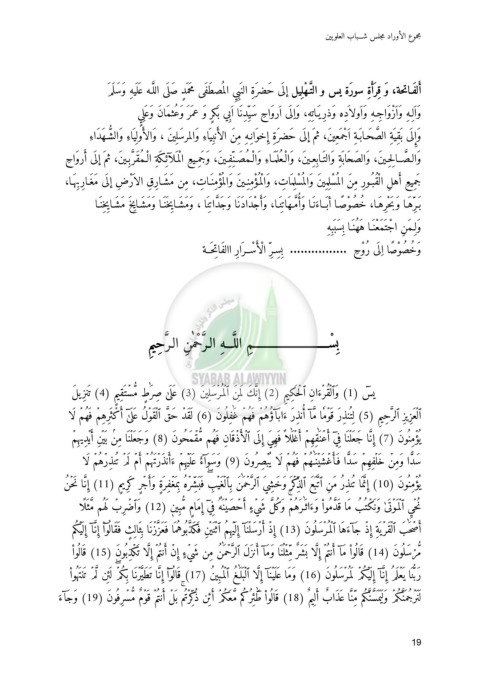 مجموع الأوراد مجلس شباب العلويين
أَلفَاتحة، وَ قِرَأَةُ سورَة يس و التَّهلِيل إلَى حَضرَة النبِي المُصطفَى مُحمّد صَلَّى اللّه عَلَيهِ وَسَلَّمَ
وَآلِهِ وَأزوَاجِهِ وَأولاَدِه وَذرِيَاتِهِ، وَإلَى اَروَاحِ سَيِّدِنَا اَبِي بَكرٍ وَ عمَرَ وَعثمَانَ وَعَلِي
وَإلَى بَقِيَة الصَّحَابَة أجمَعِينَ، ثمَ إلَى حَضرَة إخوَانِه مِنَ الأنبِيَاءِ وَالمرسَلِينَ ، وَالأولِيَاءِ وَالشُّهَدَاءِ
وَالصَّالِحِينَ، وَالصحَابَة وَالتابِعِينَ، وَالعُلمَاءِ وَالْمُصَنِّفِينَ، وَجَمِيعِ المَلآئِكَة الْمُقَرَّبِينَ، ثمَ إلَى أروَاحِ
جمِيعِ أَهلِ القُبُورِ مِنَ المُسلِمِينَ وَالمُسلِمَاتِ، وَالْمُؤمِنِينَ وَالمؤمِنَاتِ، مِن مَشَارِقِ الآرْضِ إلَى مَغَارِبِهَا،
بَرِّهَا وَبَحرِهَا، خُصُوْصًا أبَاءَنَا وَأُمَّهَاتِنَا، وَأَجْدَادَنَا وَجَدَّاتِنَا ، وَمَشَايِخَنَا وَمَشَايِخَ مَشَايِخِنَا
وَلِمَنِ اجتَمَعْنَا هَهُنَا بِسَبَبِهِ
وَخُصُوْصًا اِلَى رُوْحِ ................ بِسِرِّ الْأَسْرَارِ االفَاتِحَـة
بِسْـــمِ اللَّـهِ الرَّحْمٰنِ الرَّحِيمِ
SYABAB ALAWIYYIN
يسٓ (1) وَٱلْقُرْءَانِ ٱلْحَكِيمِ (2) إِنَّكَ لَمِنَ ٱلْمُرْسَلِينَ (3) عَلَىٰ صِرَٰطٍ مُّسْتَقِيمٍ (4) تَنزِيلَ
ٱلْعَزِيزِ ٱلرَّحِيمِ (5) لِتُنذِرَ قَوْمًا مَّآ أُنذِرَ ءَابَآؤُهُمْ فَهُمْ غَٰفِلُونَ (6) لَقَدْ حَقَّ ٱلْقَوْلُ عَلَىٰٓ أَكْثَرِهِمْ فَهُمْ لَا
يُؤْمِنُونَ (7) إِنَّا جَعَلْنَا فِىٓ أَعْنَٰقِهِمْ أَغْلَٰلًا فَهِىَ إِلَى ٱلْأَذْقَانِ فَهُم مُّقْمَحُونَ (8) وَجَعَلْنَا مِنۢ بَيْنِ أَيْدِيهِمْ
سَدًّا وَمِنْ خَلْفِهِمْ سَدًّا فَأَغْشَيْنَٰهُمْ فَهُمْ لَا يُبْصِرُونَ (9) وَسَوَآءٌ عَلَيْهِمْ ءَأَنذَرْتَهُمْ أَمْ لَمْ تُنذِرْهُمْ لَا
يُؤْمِنُونَ (10) إِنَّمَا تُنذِرُ مَنِ ٱتَّبَعَ ٱلذِّكْرَ وَخَشِىَ ٱلرَّحْمَٰنَ بِٱلْغَيْبِ ۖ فَبَشِّرْهُ بِمَغْفِرَةٍ وَأَجْرٍ كَرِيمٍ (11) إِنَّا نَحْنُ
نُحْىِ ٱلْمَوْتَىٰ وَنَكْتُبُ مَا قَدَّمُوا۟ وَءَاثَٰرَهُمْ ۚ وَكُلَّ شَىْءٍ أَحْصَيْنَٰهُ فِىٓ إِمَامٍ مُّبِينٍ (12) وَٱضْرِبْ لَهُم مَّثَلًا
أَصْحَٰبَ ٱلْقَرْيَةِ إِذْ جَآءَهَا ٱلْمُرْسَلُونَ (13) إِذْ أَرْسَلْنَآ إِلَيْهِمُ ٱثْنَيْنِ فَكَذَّبُوهُمَا فَعَزَّزْنَا بِثَالِثٍ فَقَالُوٓا۟ إِنَّآ إِلَيْكُم
مُّرْسَلُونَ (14) قَالُوا۟ مَآ أَنتُمْ إِلَّا بَشَرٌ مِّثْلُنَا وَمَآ أَنزَلَ ٱلرَّحْمَٰنُ مِن شَىْءٍ إِنْ أَنتُمْ إِلَّا تَكْذِبُونَ (15) قَالُوا۟
رَبُّنَا يَعْلَمُ إِنَّآ إِلَيْكُمْ لَمُرْسَلُونَ (16) وَمَا عَلَيْنَآ إِلَّا ٱلْبَلَٰغُ ٱلْمُبِينُ (17) قَالُوٓا۟ إِنَّا تَطَيَّرْنَا بِكُمْ ۖ لَئِن لَّمْ تَنتَهُوا۟
لَنَرْجُمَنَّكُمْ وَلَيَمَسَّنَّكُم مِّنَّا عَذَابٌ أَلِيمٌ (18) قَالُوا۟ طَٰٓئِرُكُم مَّعَكُمْ ۚ أَئِن ذُكِّرْتُم ۚ بَلْ أَنتُمْ قَوْمٌ مُّسْرِفُونَ (19) وَجَآءَ
19